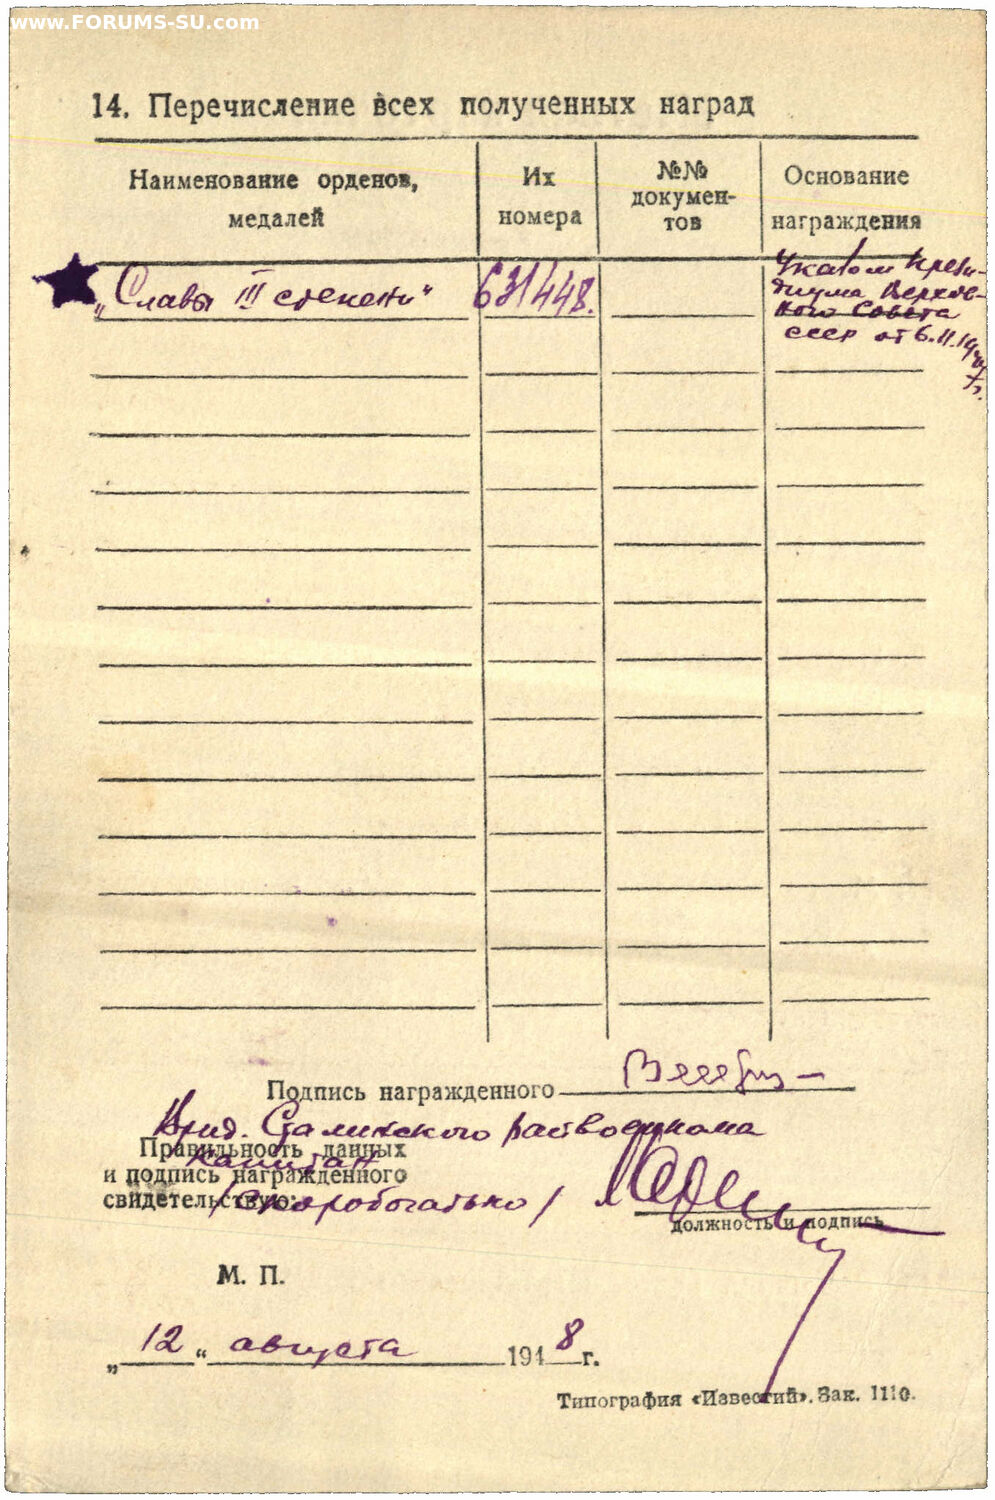 www.FORUMS-SU.com
14. Перечисление всех полученных наград
Наименование орденов,
медалей
Их
номера
№№
докумен-
тов
Основание
награждения
„Славы III степени“
631448.
Указом Прези-
диума Верхов-
ного Совета
СССР от 6.11.1947
г.
Подпись награжденного
Врид. Сталинского райвоенкома
Правильность данных
капитан
и подпись награжденного
свидетельствую:
/Скоробогатько/
должность и подпись
М. П.
„12“ августа 1948 г.
Типография «Известий». Зак. 1110.